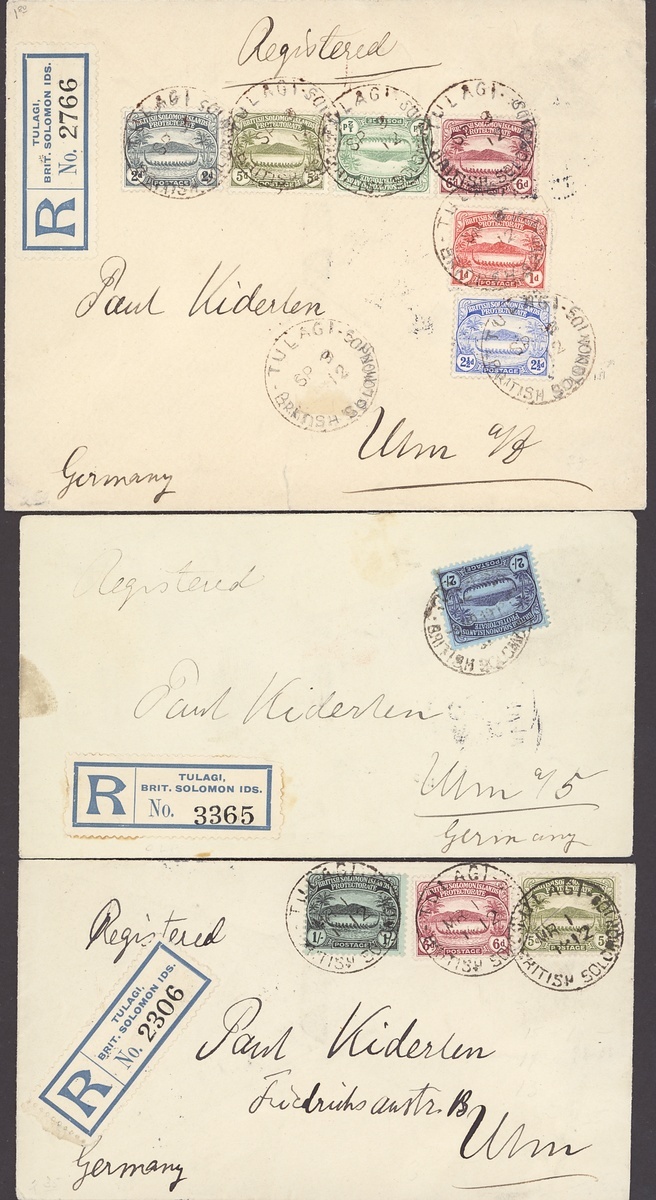 Registered
R
TULAGI,
BRIT. SOLOMON IDS.
No. 2766
BRITISH SOLOMON ISLANDS
PROTECTORATE
2d 2d
POSTAGE
BRITISH SOLOMON ISLANDS
PROTECTORATE
5d 5d
POSTAGE
BRITISH SOLOMON ISLANDS
PROTECTORATE
6d 6d
POSTAGE
BRITISH SOLOMON ISLANDS
PROTECTORATE
1d 1d
POSTAGE
BRITISH SOLOMON ISLANDS
PROTECTORATE
2½d 2½d
POSTAGE
Paul Kiderlen
TULAGI-SOLOMON
SP 9
12
BRITISH
Ulm a/D
Germany
Registered
2/- 2/-
POSTAGE
BRITISH SOLOMON ISLANDS
PROTECTORATE
BRITISH SOLOMON
Paul Kiderlen
R
TULAGI,
BRIT. SOLOMON IDS.
No. 3365
Ulm a/D
Germany
BRITISH SOLOMON ISLANDS
PROTECTORATE
1/- 1/-
POSTAGE
BRITISH SOLOMON ISLANDS
PROTECTORATE
6d 6d
POSTAGE
BRITISH SOLOMON ISLANDS
PROTECTORATE
5d 5d
POSTAGE
TULAGI
MR 1
12
BRITISH SOLOMON
Registered
R
TULAGI,
BRIT. SOLOMON IDS.
No. 2306
Paul Kiderlen
Ulm
Germany